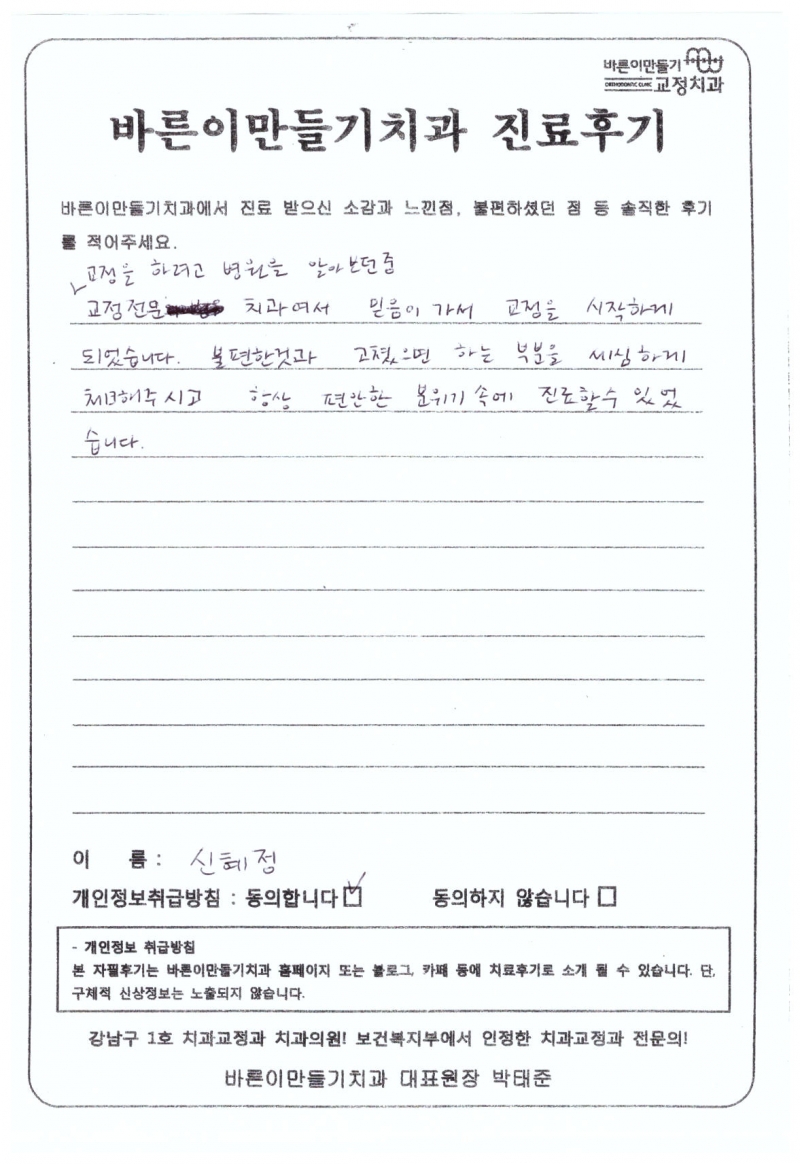 바른이만들기
ORTHODONTIC CLINIC 교정치과
바른이만들기치과 진료후기
바른이만들기치과에서 진료 받으신 소감과 느낀점, 불편하셨던 점 등 솔직한 후기
를 적어주세요.
교정을 하려고 병원을 알아보던중
교정전문 치과여서 믿음이 가서 교정을 시작하게
되었습니다. 불편한것과 고쳤으면 하는 부분을 세심하게
체크해주시고 항상 편안한 분위기 속에 진료할수 있었
습니다.
이 름 : 신혜정
개인정보취급방침 : 동의합니다 ☑ 동의하지 않습니다 ☐
- 개인정보 취급방침
본 자필후기는 바른이만들기치과 홈페이지 또는 블로그, 카페 등에 치료후기로 소개 될 수 있습니다. 단,
구체적 신상정보는 노출되지 않습니다.
강남구 1호 치과교정과 치과의원! 보건복지부에서 인정한 치과교정과 전문의!
바른이만들기치과 대표원장 박태준